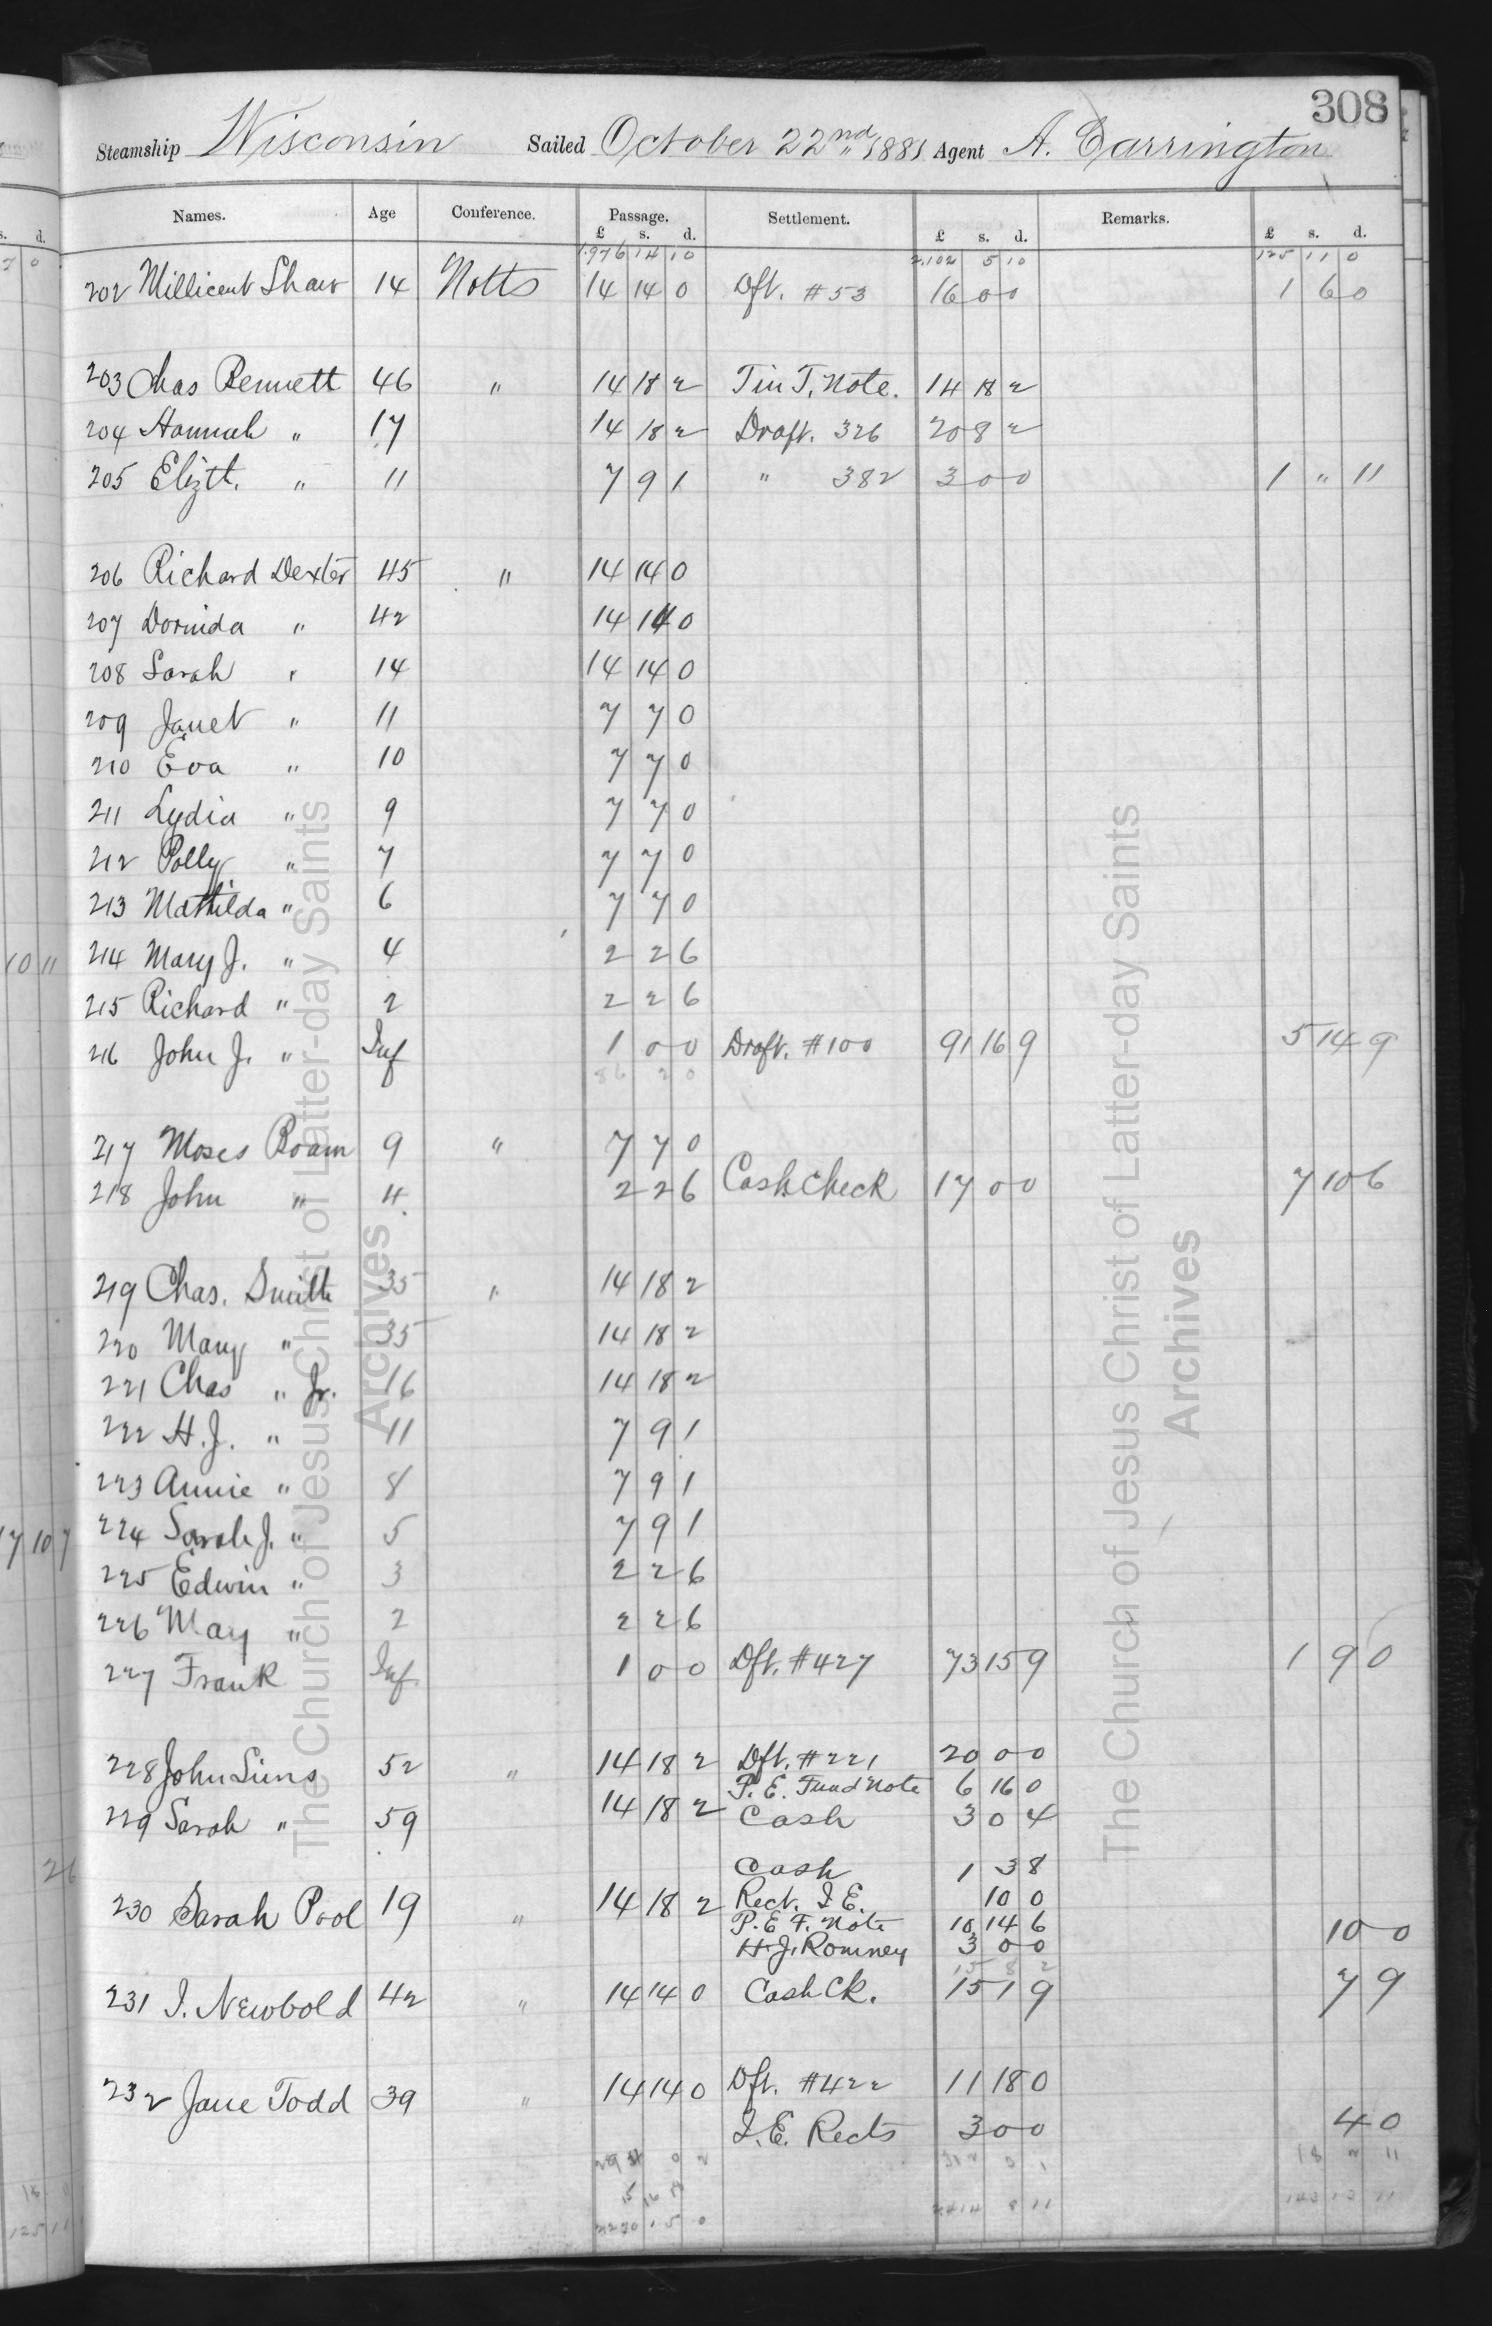 308
Steamship Wisconsin Sailed October 22nd 1881 Agent A. Carrington
Names. Age Conference. Passage. Settlement. Remarks.
£ s. d. £ s. d. £ s. d.
1,976 14 10 2,102 5 10 125 11 0
202 Millicent Shaw 14 Notts 14 14 0 Dft. #53 16 0 0 1 6 0
203 Chas Bennett 46 " 14 18 2 Tin T. Note. 14 18 2
204 Hannah " 17 14 18 2 Draft. 326 20 8 2
205 Elizth. " 11 7 9 1 " 382 3 0 0 1 " 11
206 Richard Dexter 45 " 14 14 0
207 Dorinda " 42 14 14 0
208 Sarah " 14 14 14 0
209 Janet " 11 7 7 0
210 Eva " 10 7 7 0
211 Lydia " 9 7 7 0
212 Polly " 7 7 7 0
213 Mathilda " 6 7 7 0
214 Mary J. " 4 2 2 6
215 Richard " 2 2 2 6
216 John J. " Inf 1 0 0 Draft. #100 91 16 9 5 14 9
86 2 0
217 Moses Boam 9 " 7 7 0
218 John " 4 2 2 6 Cash Check 17 0 0 7 10 6
219 Chas. Smith 35 " 14 18 2
220 Mary " 35 14 18 2
221 Chas " Jr. 16 14 18 2
222 H. J. " 11 7 9 1
223 Annie " 8 7 9 1
224 Sarah J. " 5 7 9 1
225 Edwin " 3 2 2 6
226 May " 2 2 2 6
227 Frank Inf. 1 0 0 Dft. #427 73 15 9 1 9 0
228 John Sims 52 " 14 18 2 Dft. #221 20 0 0
P. E. Fund Note 6 16 0
229 Sarah " 59 14 18 2 Cash 3 0 4
Cash 1 3 8
230 Sarah Pool 19 " 14 18 2 Rect. I. E. 10 0
P. E. F. Note 10 14 6
H. J. Romney 3 0 0 10 0
15 8 2
231 I. Newbold 42 " 14 14 0 Cash Ck. 15 1 9 7 9
232 Jane Todd 39 " 14 14 0 Dft. #422 11 18 0
I. E. Rects 3 0 0 4 0
18 2 11
The Church of Jesus Christ of Latter-day Saints
Archives
The Church of Jesus Christ of Latter-day Saints
Archives